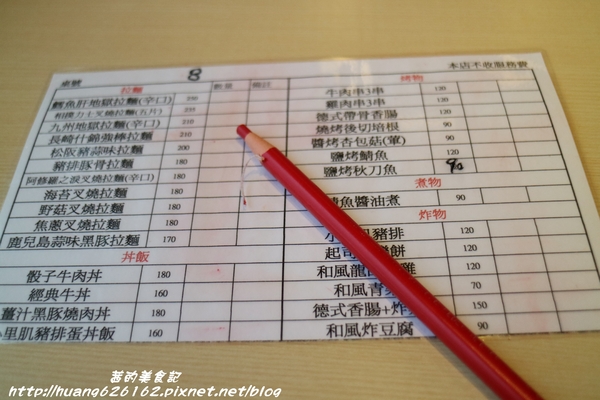 桌號 8 本店不收服務費
拉麵 數量 備註
鱷魚肝地獄拉麵(辛口) 250
相撲力士叉燒拉麵(五片) 235
九州地獄拉麵(辛口) 210
長崎什錦強棒拉麵 210
松阪豬蒜味拉麵 200
豬排豚骨拉麵 180
阿修羅之淚叉燒拉麵(辛口) 180
海苔叉燒拉麵 180
野菇叉燒拉麵 180
蕉蔥叉燒拉麵 180
鹿兒島蒜味黑豚拉麵 170
丼飯
骰子牛肉丼 180
經典牛丼 160
薑汁黑豚燒肉丼 180
里肌豬排蛋丼飯 160
烤物
牛肉串3串 120
雞肉串3串 120
德式帶骨香腸 120
燒烤後切培根 90
醬烤杏包菇(葷) 90
鹽烤鯖魚 120
鹽烤秋刀魚 90
煮物
魚醬油煮 90
炸物
豬排 120
起司 餅 90
和風龍 雞 120
和風青 70
德式香腸+炸 150
和風炸豆腐 90
茜的美食記
http://huang626162.pixnet.net/blog